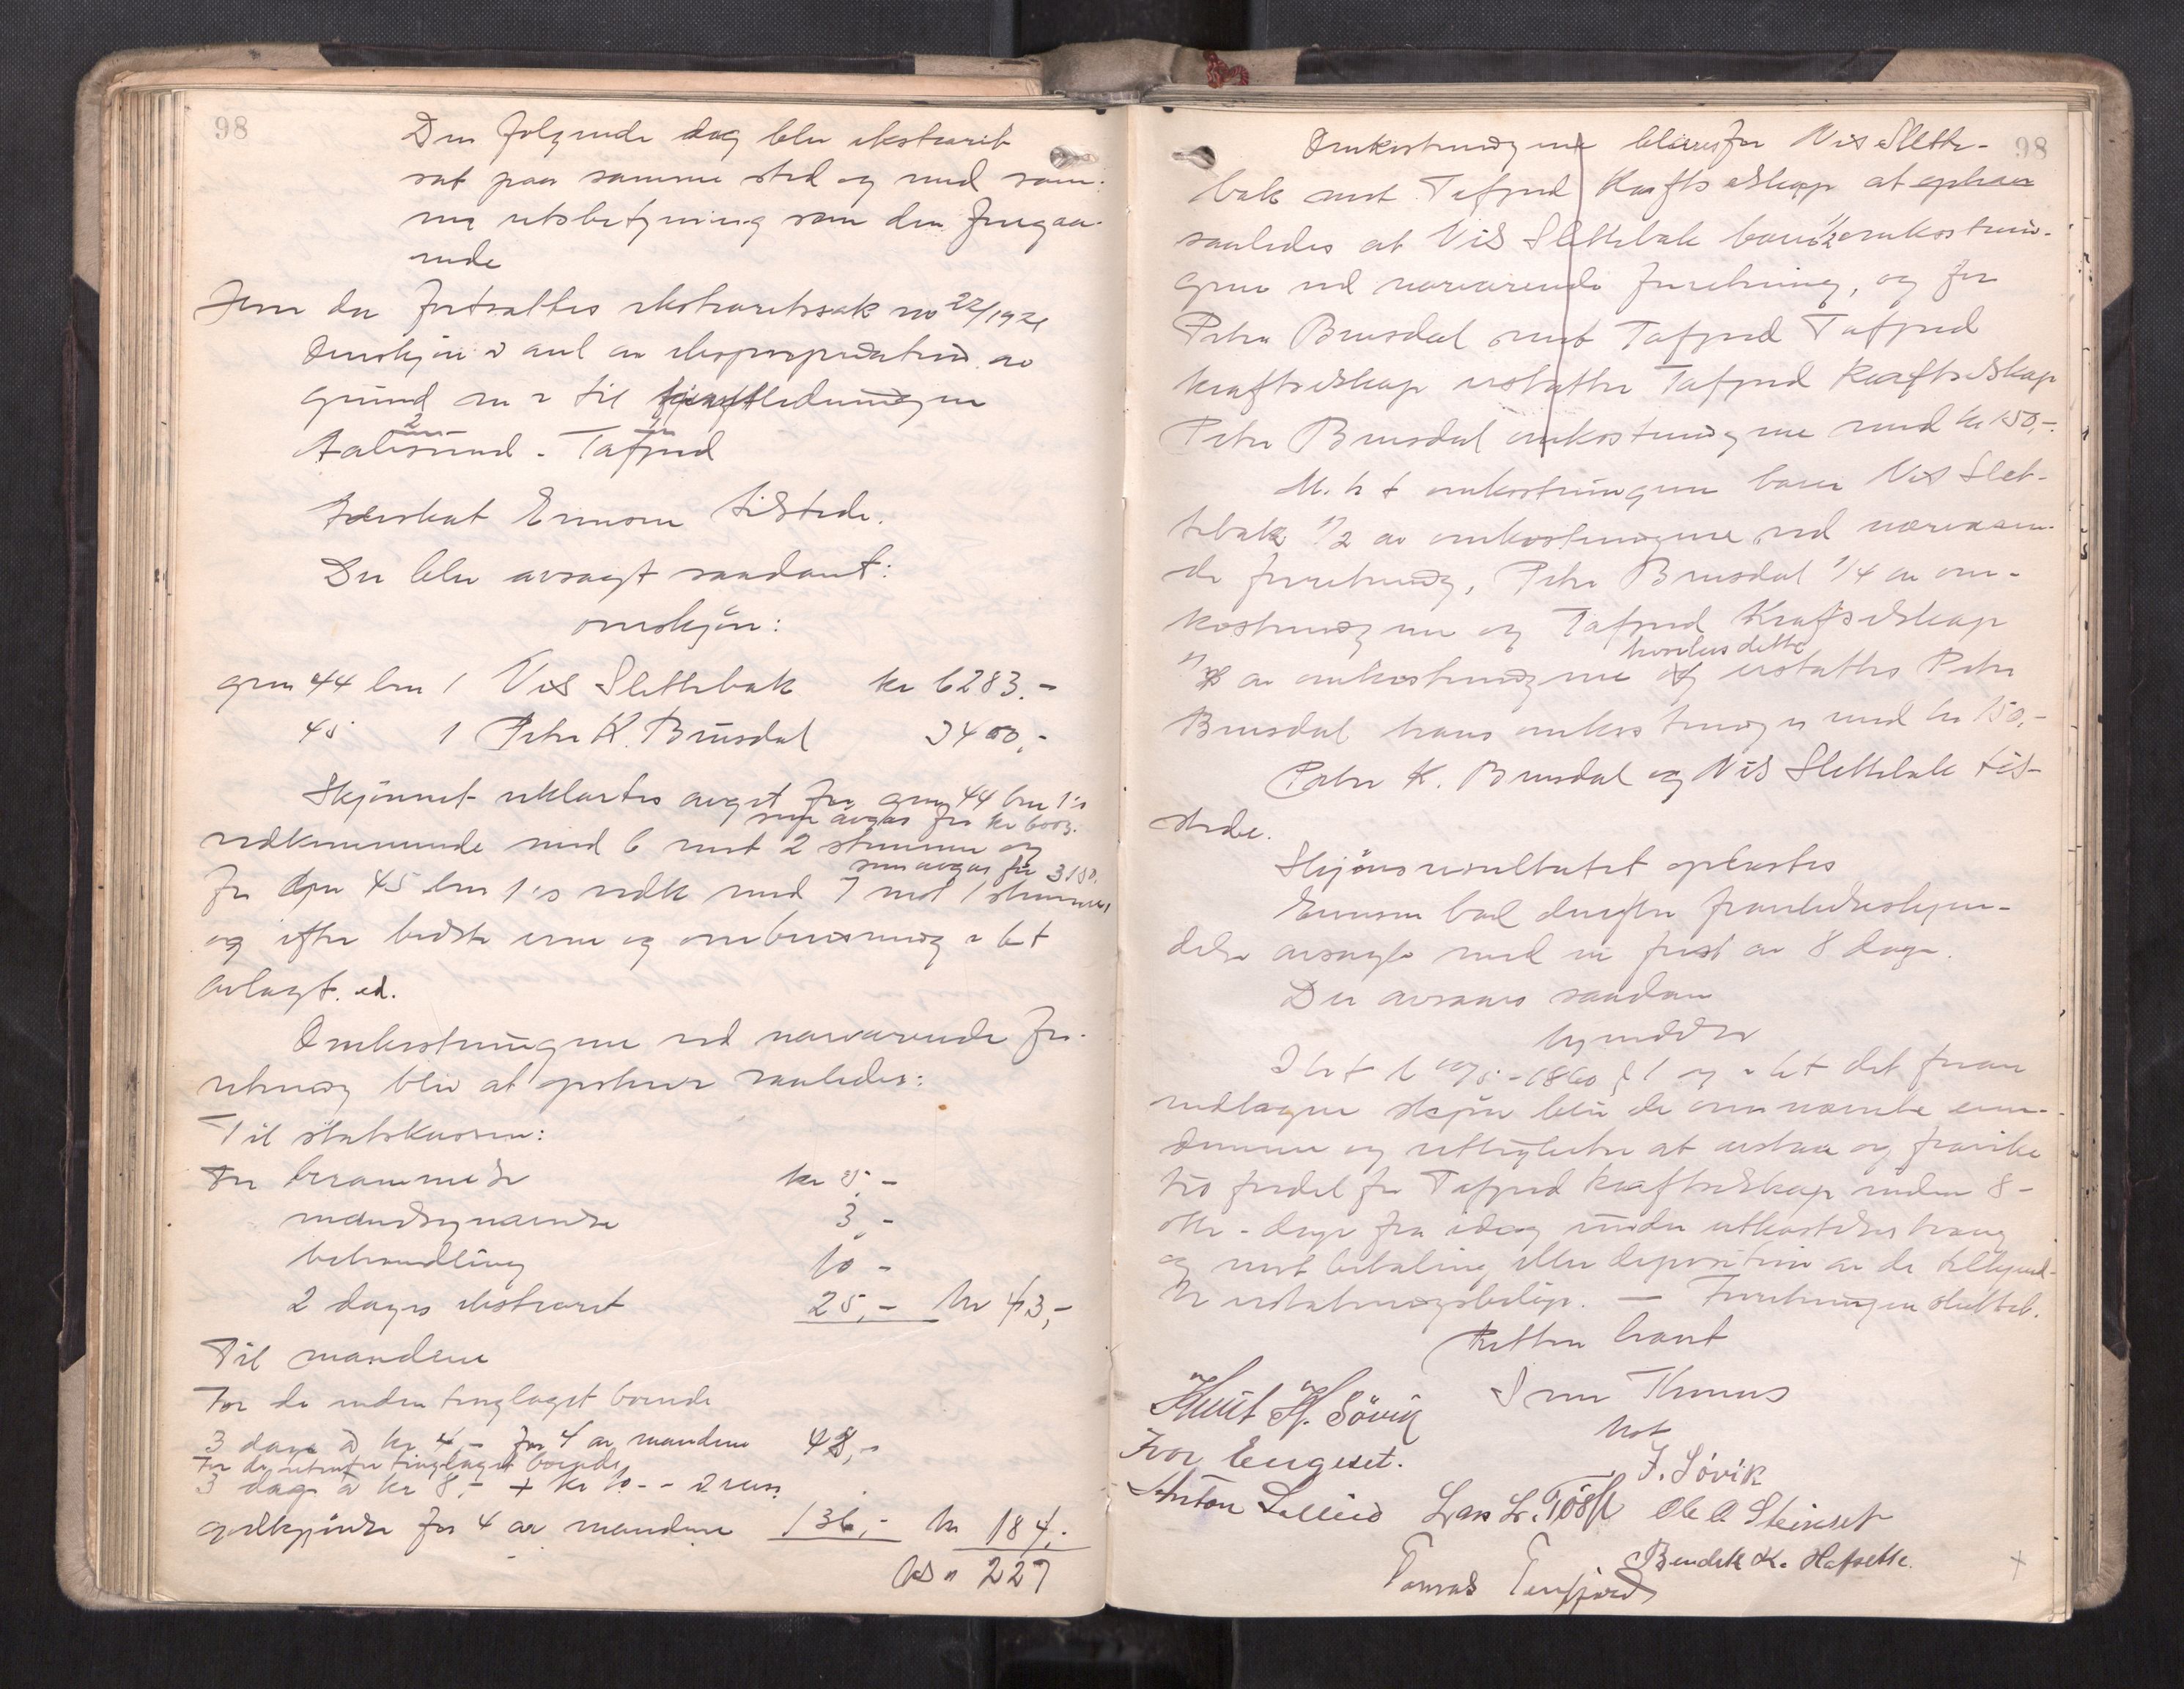 98
Den følgende dag blev ekstraret
sat paa samme sted og med sam-
me retsbetjening som den foregaa-
ende
Hvor da fortsattes ekstraretssak no 22/1921
Omskjøn i anl av ekspropriation av
grund m v til kraftledningen
Aalesund - Tafjord
Advokat Ermson tilstede.
Der blev avsagt saadant:
omskjøn:
gnr 44 bnr 1 Nils Slettebak kr 6283.-
45 1 Peter K. Brusdal 3400,-
Skjønnet erklærtes avgit for gnr 44 bnr 1's
som avgav for kr 6003.
vedkommende med 6 mot 2 stemmer og
som avgav for 3150.
for gnr 45 bnr 1's vedk med 7 mot 1 stemmer
og efter bedste evne og overbevisning i h t
avlagt ed.
Omkostningene ved nærværende for-
retning blir at opføre saaledes:
Til statskassen:
For berammelse kr 5.-
mandsopnævnelse 3.-
behandling 10 -
2 dages ekstraret 25,- kr 43,-
Til mændene
For de inden tinglaget boende
3 dage à kr 4.- for 4 av mændene 48,-
For de utenfor tinglaget boende
3 dage à kr 8,- + kr 10.- i reise
godtgjørelse for 4 av mændene 136,- kr 184.-
Ialt " 227
98
Omkostningene blir for Nils Slette-
bak mot Tafjord Kraftselskap at ophæve
saaledes at Nils Slettebak bærer 1/2 omkostnin-
gene ved nærværende forretning, og for
Peter Brusdal mot Tafjord Tafjord
kraftselskap erstatter Tafjord kraftselskap
Peter Brusdal omkostningene med kr 150,-.
M. h t omkostningene bærer Nils Slet-
tebak 1/2 av omkostningene ved nærværen-
de forretning, Peter Brusdal 1/4 av om-
kostningene og Tafjord Kraftselskap
hvorhos dette
av omkostningene og erstattes Peter
Brusdal hans omkostninger med kr 150,-
Peter K. Brusdal og Nils Slettebak til-
stede.
Skjønsresultatet oplæstes
Ermson bad derefter fravikelseskjen-
delse avsagt med en frist av 8 dage.
Der avsaaes saadan
kjendelse
I h t l 10/5-1860 § 1 og i h t det foran
vedtagne skjøn blir de omnævnte eien-
domme og rettigheter at avstaa og fravike
til fordel for Tafjord kraftselskap inden 8-
otte - dage fra idag under utkastelses tvang
og mot betaling eller deposition av de tilkjend-
te erstatningsbeløp. — Forretningen sluttet.
Retten hævet
Knut H. Søvik
Ivar Engeset. J. Søvik
Anton Lillebø Lars L. Tøsse Ole A Steinset
Tomas Tenfjord Bendik K. Hofsette.